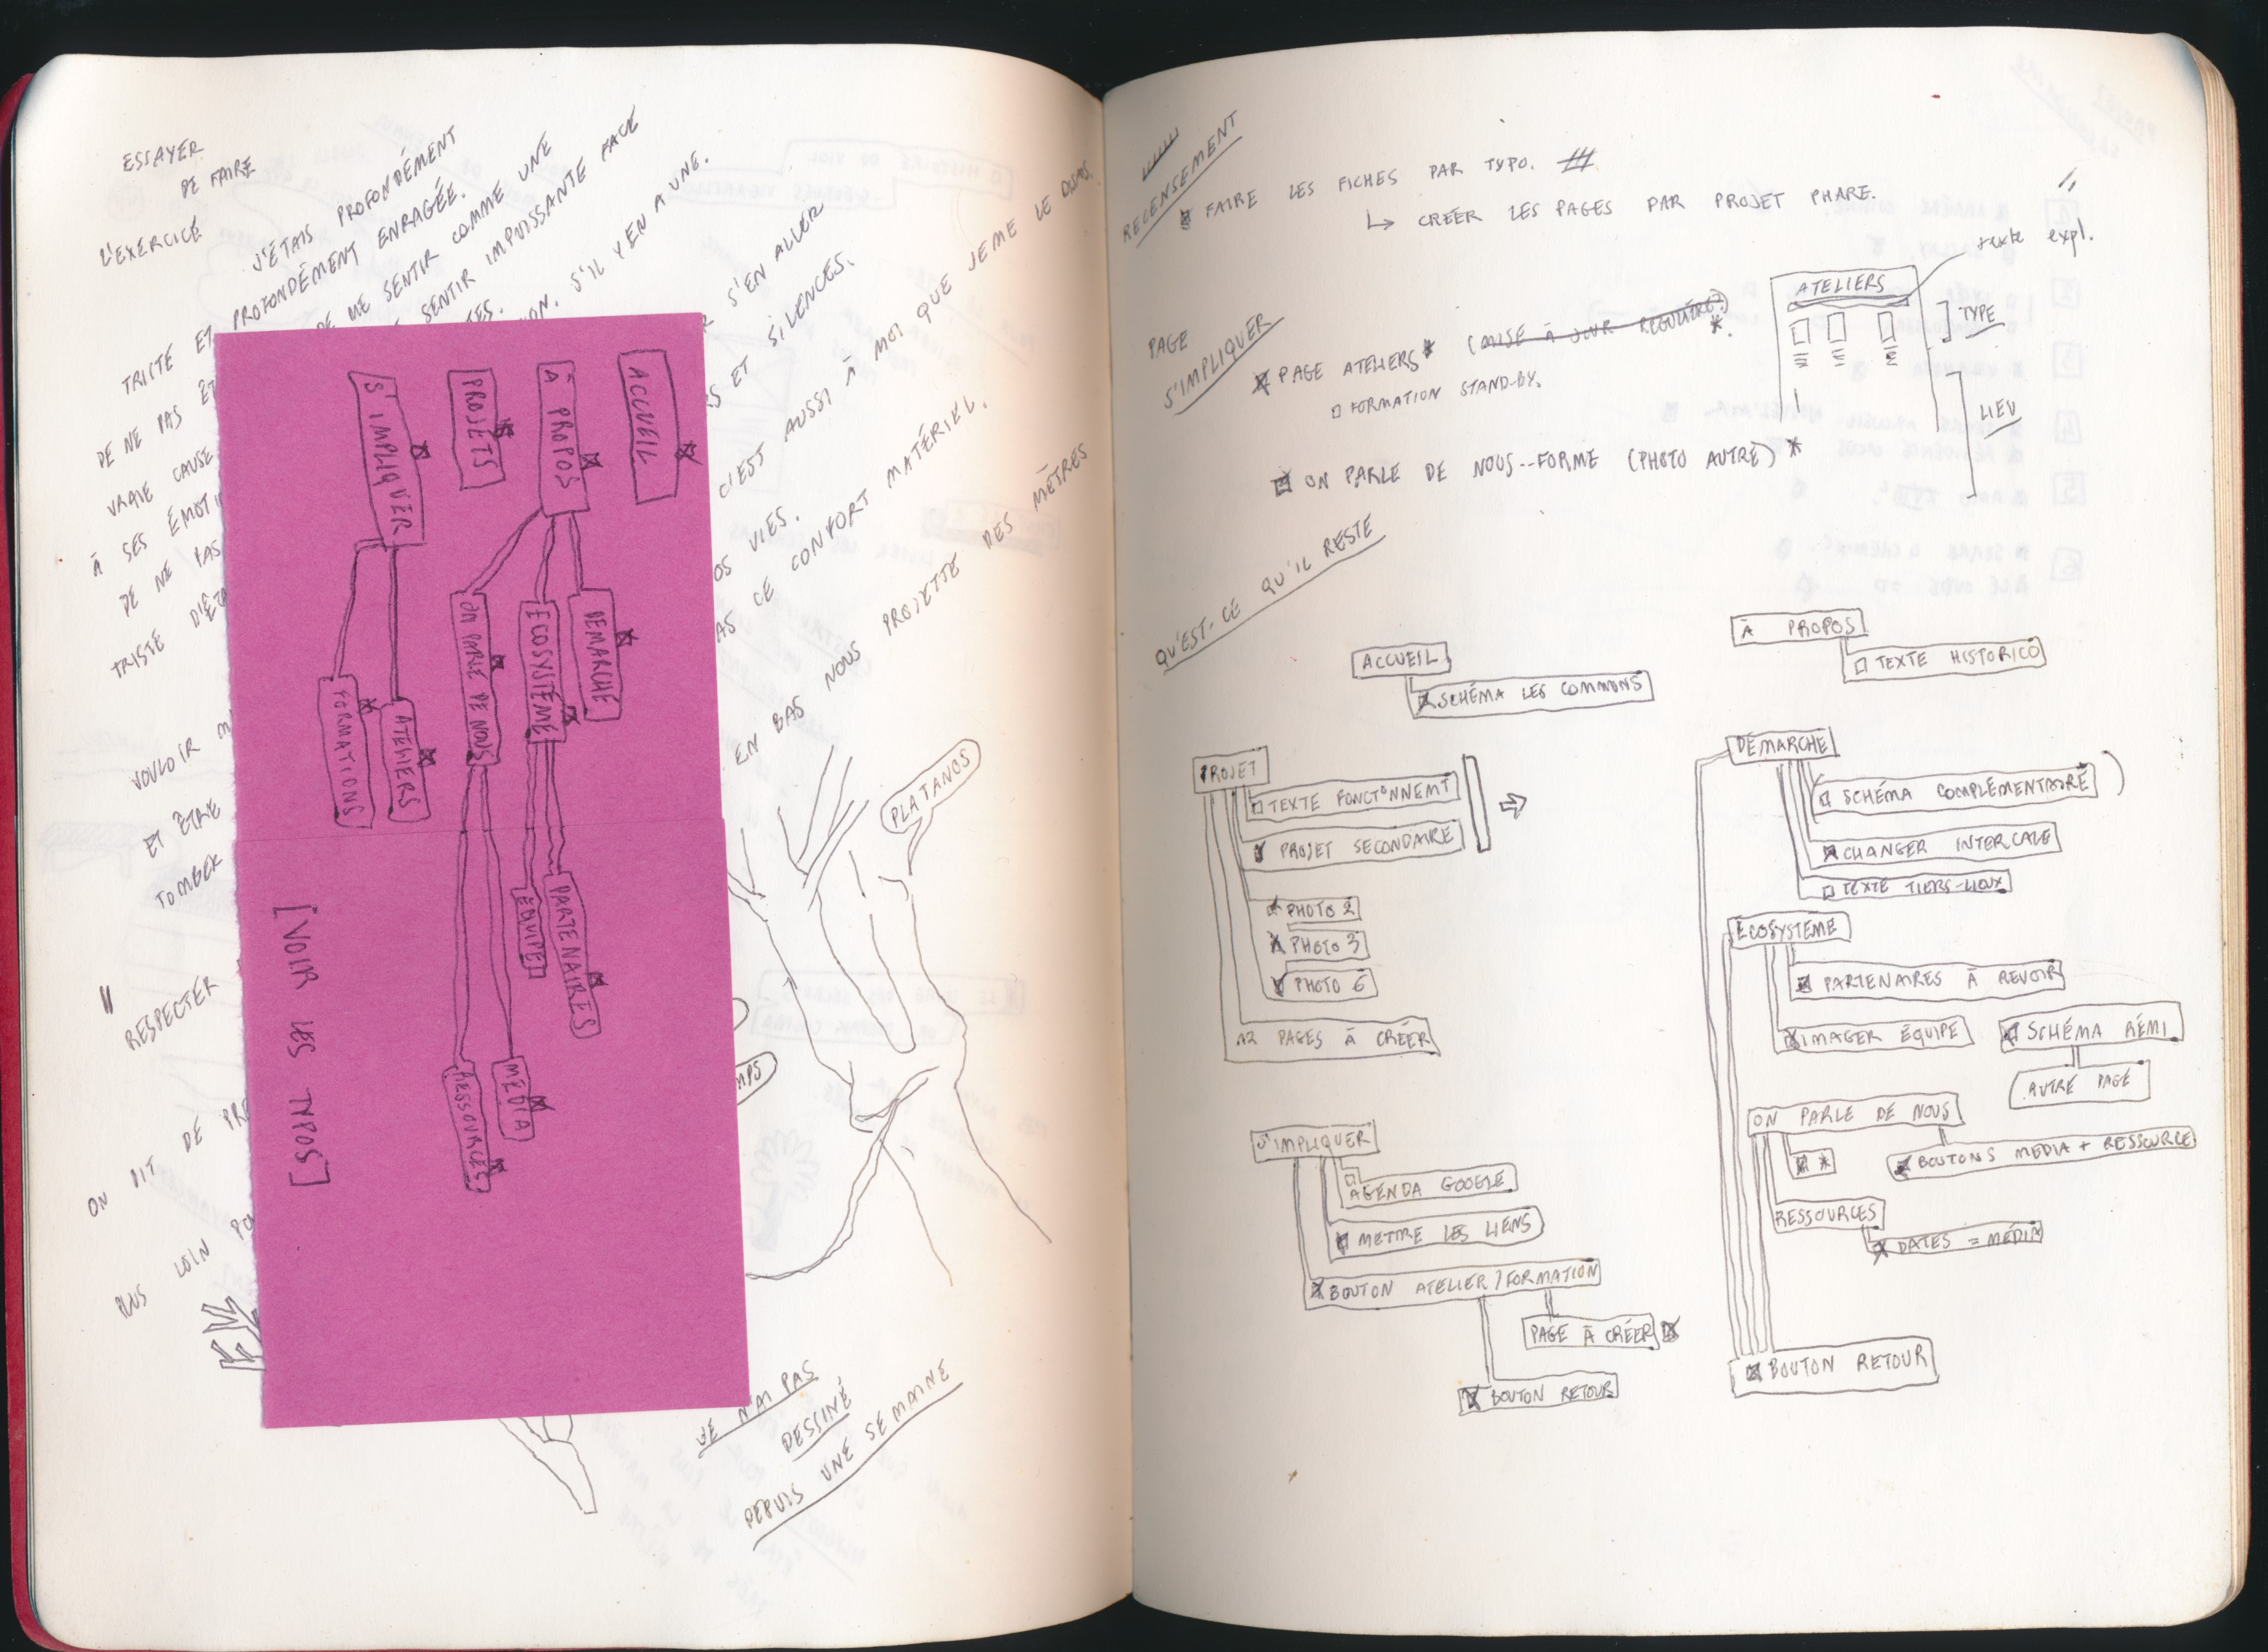 ESSAYER
DE FAIRE
L'EXERCICE
J'ÉTAIS PROFONDÉMENT
TRISTE ET PROFONDÉMENT ENRAGÉE.
DE NE PAS DE ME SENTIR COMME UNE
VRAIE CAUSE SENTIR IMPUISSANTE FACE
À SES ÉMOTI
DE NE PAS S'IL Y EN A UNE.
TRISTE
S'EN ALLER
ET SILENCES.
C'EST AUSSI À MOI QUE JE ME LE DISAIS.
OS VIES.
CE CONFORT MATÉRIEL.
VOULOIR
EN BAS NOUS PROJETTE DES MÈTRES
ET ÊTRE
TOMBER
PLATANOS
RESPECTER
ON DIT DE
PLUS LOIN
MPS
JE N'AI PAS
DESSINÉ
DEPUIS UNE SEMAINE
ACCUEIL
À PROPOS
PROJETS
S'IMPLIQUER
DÉMARCHE
ÉCOSYSTÈME
ON PARLE DE NOUS
ATELIERS
FORMATIONS
PARTENAIRES
ÉQUIPE
MÉDIA
RESSOURCES
[VOIR LES TYPOS]
RECENSEMENT
FAIRE LES FICHES PAR TYPO.
↳ CRÉER LES PAGES PAR PROJET PHARE.
texte expl.
ATELIERS
TYPE
LIEU
PAGE
S'IMPLIQUER
PAGE ATELIERS* (MISE À JOUR RÉGULIÈRE?) *.
FORMATION STAND-BY.
ON PARLE DE NOUS--FORME (PHOTO AUTRE) *
QU'EST-CE QU'IL RESTE
ACCUEIL
SCHÉMA LES COMMUNS
PROJET
TEXTE FONCTIONNEMT
PROJET SECONDAIRE
PHOTO 2
PHOTO 3
PHOTO 6
12 PAGES À CRÉER
S'IMPLIQUER
AGENDA GOOGLE
METTRE LES LIENS
BOUTON ATELIER/FORMATION
PAGE À CRÉER
BOUTON RETOUR
À PROPOS
TEXTE HISTORICO
DÉMARCHE
SCHÉMA COMPLÉMENTAIRE)
CHANGER INTERCALE
TEXTE TIERS-LIEUX
ÉCOSYSTÈME
PARTENAIRES À REVOIR
IMAGER ÉQUIPE
SCHÉMA RÉMI
AUTRE PAGE
ON PARLE DE NOUS
*
BOUTONS MEDIA + RESSOURCE
RESSOURCES
DATES = MÉDIA
BOUTON RETOUR